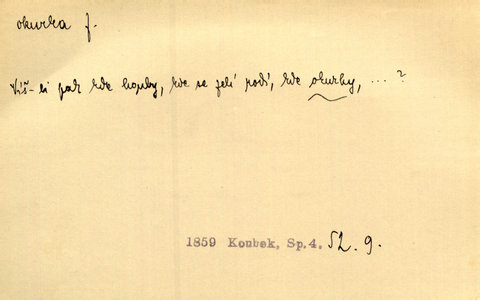 okurka f.
Víš-li pak kde hopky, kde se zelí rodí, kde okurky, ... ?
1859 Koubek, Sp.4. 52.9.